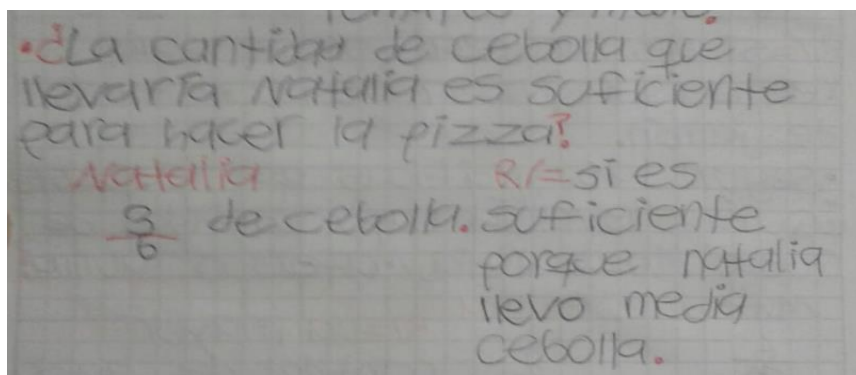 •¿La cantidad de cebolla que
llevaría Natalia es suficiente
para hacer la pizza?
Natalia
3/6 de cebolla.
R/= si es
suficiente
porque natalia
llevo media
cebolla.